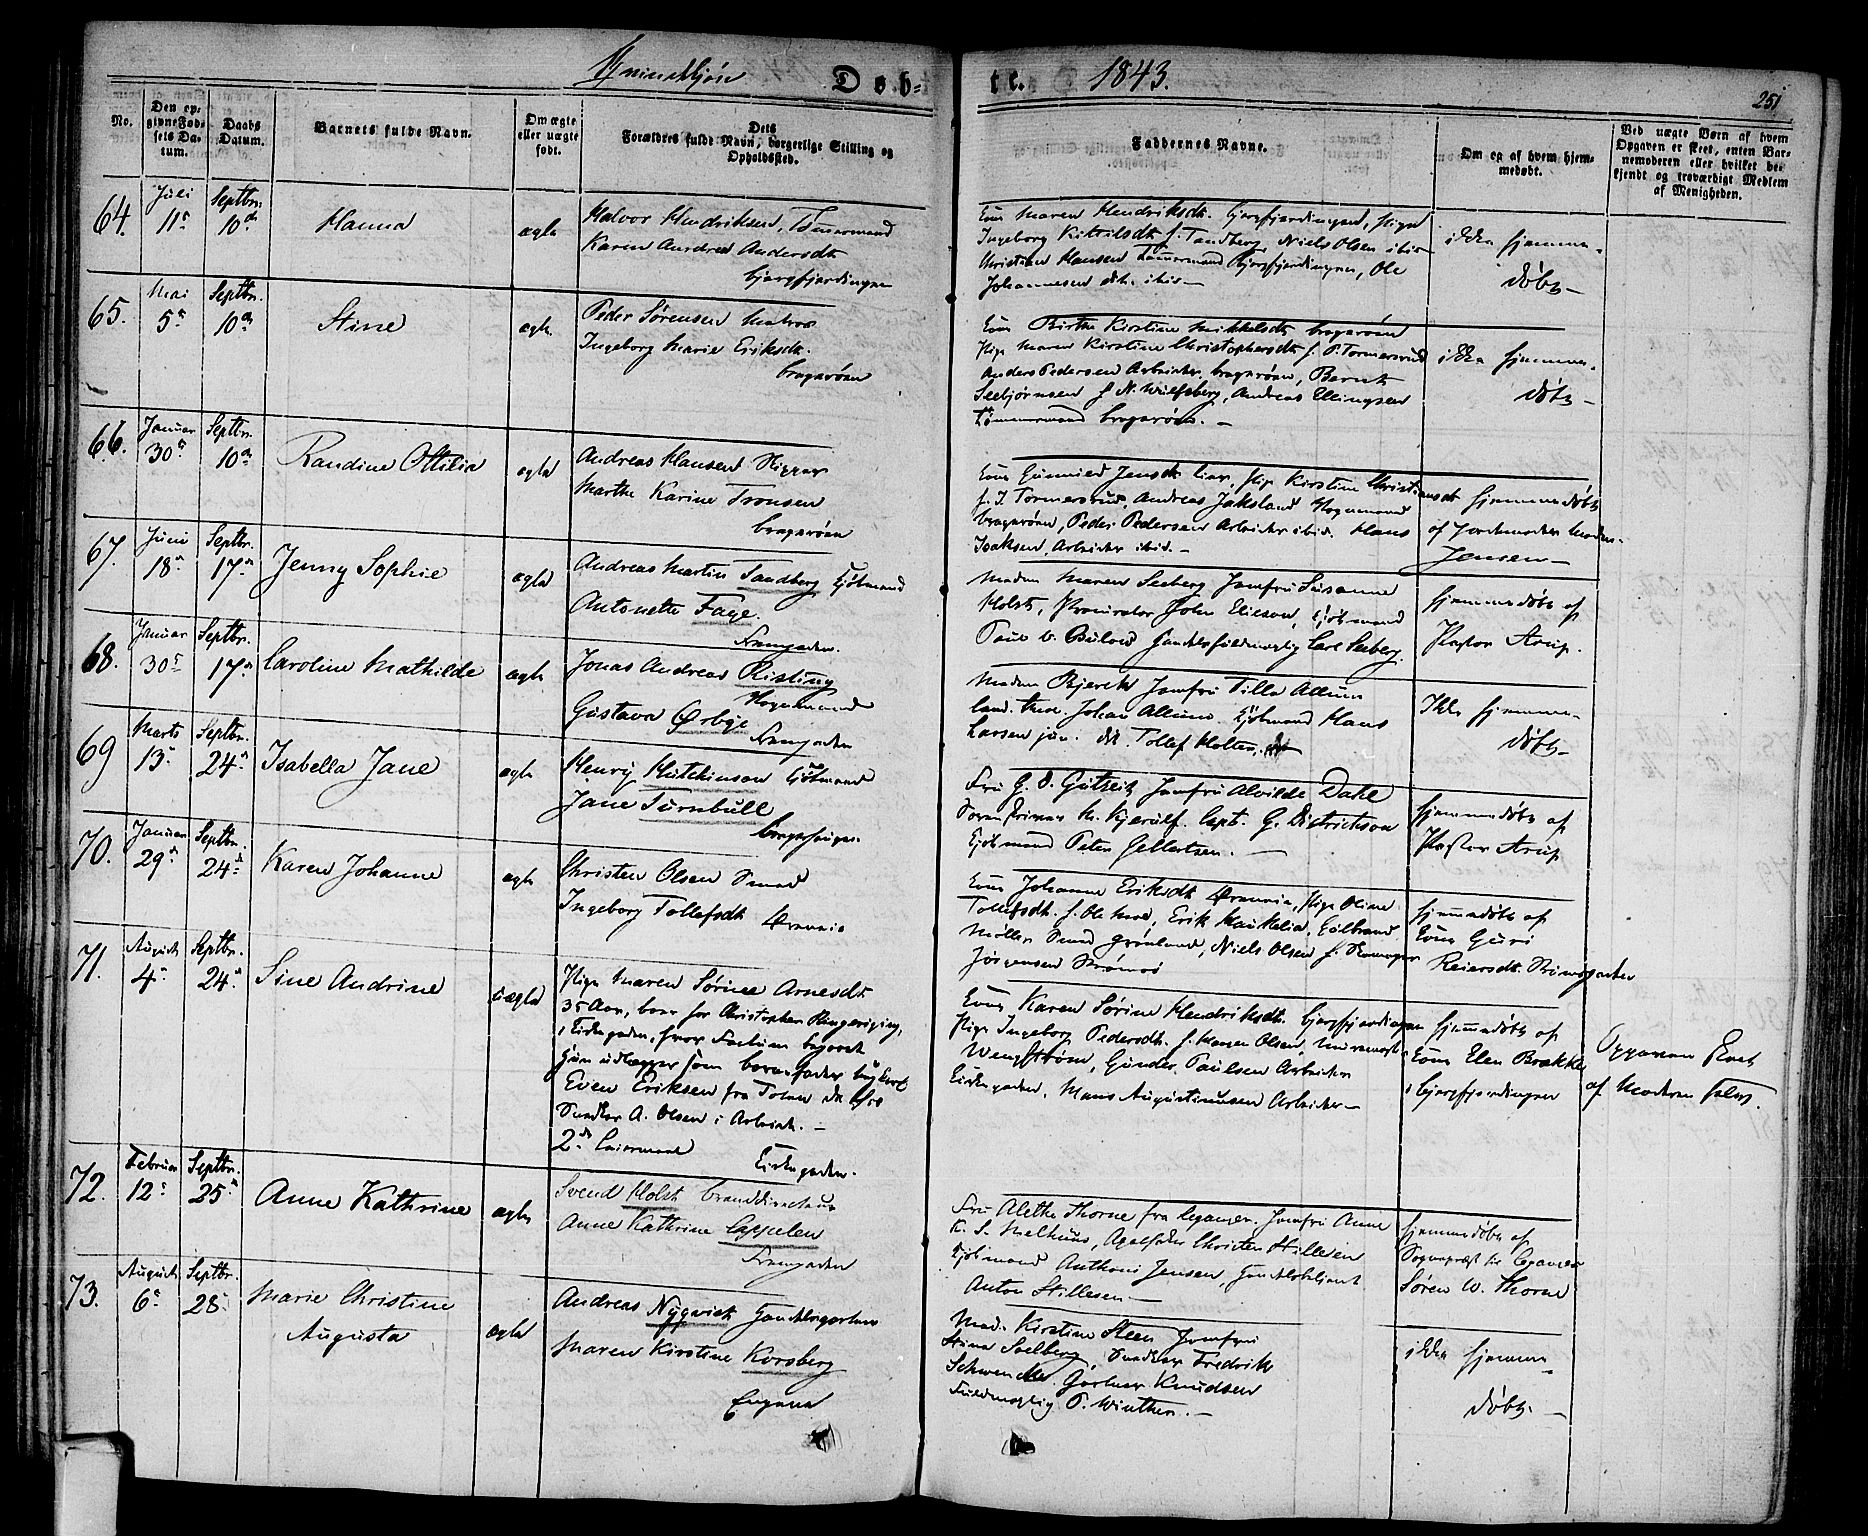 Qvindekjøn Døb-
te. 1843.
251
No.
Den opgivne Fødsels Datum.
Daabs Datum.
Barnets fulde Navn.
Om ægte eller uægte født.
Dets Forældres fulde Navn, borgerlige Stilling og Opholdssted.
Faddernes Navne.
Om og af hvem hjemmedøbt.
Ved uægte Børn af hvem Opgaven er skeet, enten Barnemoderen eller hvilket bekjendt og troværdigt Medlem af Menigheden.
64. Juli 11 Septbr. 10de
Hanna
ægte
Halvor Hendriksen, Tømmermand
Karen Andrea Andersdt
bjergfjerdingen
Kone Maren Hendriksdt. bjergfjerdingen, Pige
Ingeborg Kittilsdt f. Tandberg, Niels Olsen ibid
Christian Hansen Tømmermand bjergfjerdingen, Ole
Johannesen ibid
ikke hjemme-
døbt
65. Mai 5 Septbr. 10de
Stine
ægte
Peder Sørensen Matros
Ingeborg Marie Eriksdt.
bragerøen
Kone Birthe Kirstine Mikkelsdt bragerøen
Pige Maren Kirstine Christophersdt f. P. Tormersrud
Anders Pedersen Arbeider bragerøen, Bernt
Seebjørnsen f N. Wulfsberg, Andreas Ellingsen
Tømmermand bragerøen. -
ikke hjemme-
døbt
66. Januar 30 Septbr. 10de
Randine Ottilia
ægte
Andreas Hansen Skipper
Marthe Karine Tronsen
bragerøen
Kone Gunnild Jensdt Lier, Pige Kirstine Christiansdt
f. I. Tormersrud, Andreas Jaksland
bragerøen, Peder Pedersen Arbeider ibid. Hans
Isaksen, Arbeider ibid. -
hjemmedøbt
af Jordemoder
Jensen
67. Juni 18 Septbr. 17de
Jenny Sophie
ægte
Andreas Martin Tandberg Kjøbmand
Antonette Faye.
Strømgaden.
Madm Maren Seeberg Jomfru Susanne
Holst, Procurator John Ellieson, Kjøbmand
Paul v. Bülow Handelsfuldmægtig Carl Seeberg.
hjemmedøbt af
Pastor Arup.
68. Januar 30 Septbr. 17de
Caroline Mathilde
ægte
Jonas Andreas Risting
Gustava Ørbye
Strømgaden
Madm Bjerck Jomfru Tilla Allum
Johan Allum. Kjøbmand Hans
Larsen jun. Tollef Holter.
Ikke hjemme-
døbt
69 Marts 13 Septbr. 24
Isabella Jane
ægte
Henry Hutchinson Kjøbmand
Jane Turnbull
Fru G. D. Gutzeit Jomfru Alvilde Dahl
Sorenskriver Kjerulf. Capt. G. Dietrichson
Kjøbmand Peter Gellertsen. -
hjemmedøbt af
Pastor Arup
70. Januar 29 Septbr. 24
Karen Johanne
ægte
Christen Olsen Smed
Ingeborg Tollefsdt
Kone Johanne Eriksdt Pige Oline
Tollefsdt. f. Ole Erik Haukelia, Gulbrand
Møller Smed Grønland, Niels Olsen f.
Jørgensen Strømsø
hjemmedøbt af
Kone Guri
Reiersdt.
71. August 4 Septbr. 24
Sine Andrine
uægte
Pige Maren Sørine Arnesdt
35 Aar, boer for Christopher Ringeriging,
i Kirkegaden, hvor Factum begaaet
Hun udlægger som barnefader Ungkarl
Even Eriksen fra Toten
Snedker A. Olsen i Arbeide. -
2de Leiermaal
Kirkegaden.
Kone Karen Sørine Hendriksdt. bjergfjerdingen
Pige Ingeborg Pedersdt. f. Olsen, Muurmester
Wengstrøm, Gunder Paulsen Arbeider
Kirkegaden, Hans Augustinusen Arbeider
hjemmedøbt af
Kone Elen Brække
i bjergfjerdingen
Opgaven skeet
af Moderen selv.
72. Februar 12 Septbr. 25
Anne Kathrine
ægte
Svend Holst branddirecteur
Anne Kathrine Cappelen
Strømgaden
Fru Alethe Thorne fra Leganger. Jomfru Anne
K. S. Melhuus, Apotheker Christen Stillesen
Kjøbmand Anthoni Jensen, Handelsbetjent
Anton Stillesen
hjemmedøbt af
Sognepræst til Leganger
Søren W. Thorne
73. August 6 Septbr. 28
Marie Christine
Augusta
ægte
Andreas Nyqvist
Maren Kirstine Korsberg
Engene
Mad. Kirstine Steen Jomfru
Stina Solberg, Snedker Fredrik
Schwencke. Gartner Knudsen
Fuldmægtig P. Winther. -
ikke hjemme-
døbt. -